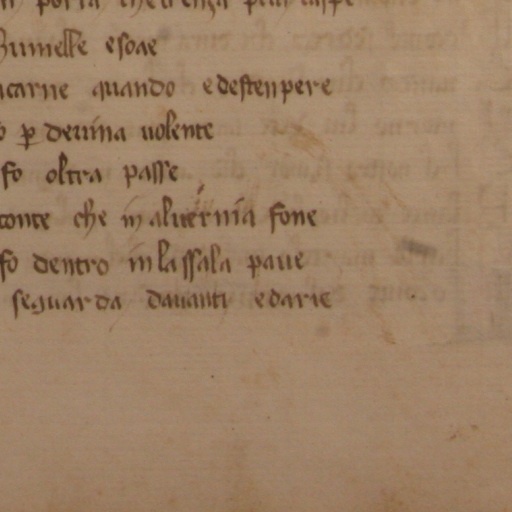 porta che
humelle e soae
carne quando e destenpere
per deuina uolente
fo oltra passe
conte che in aluernia fone
fo dentro in la ssala paue
se guarda dauanti e darie